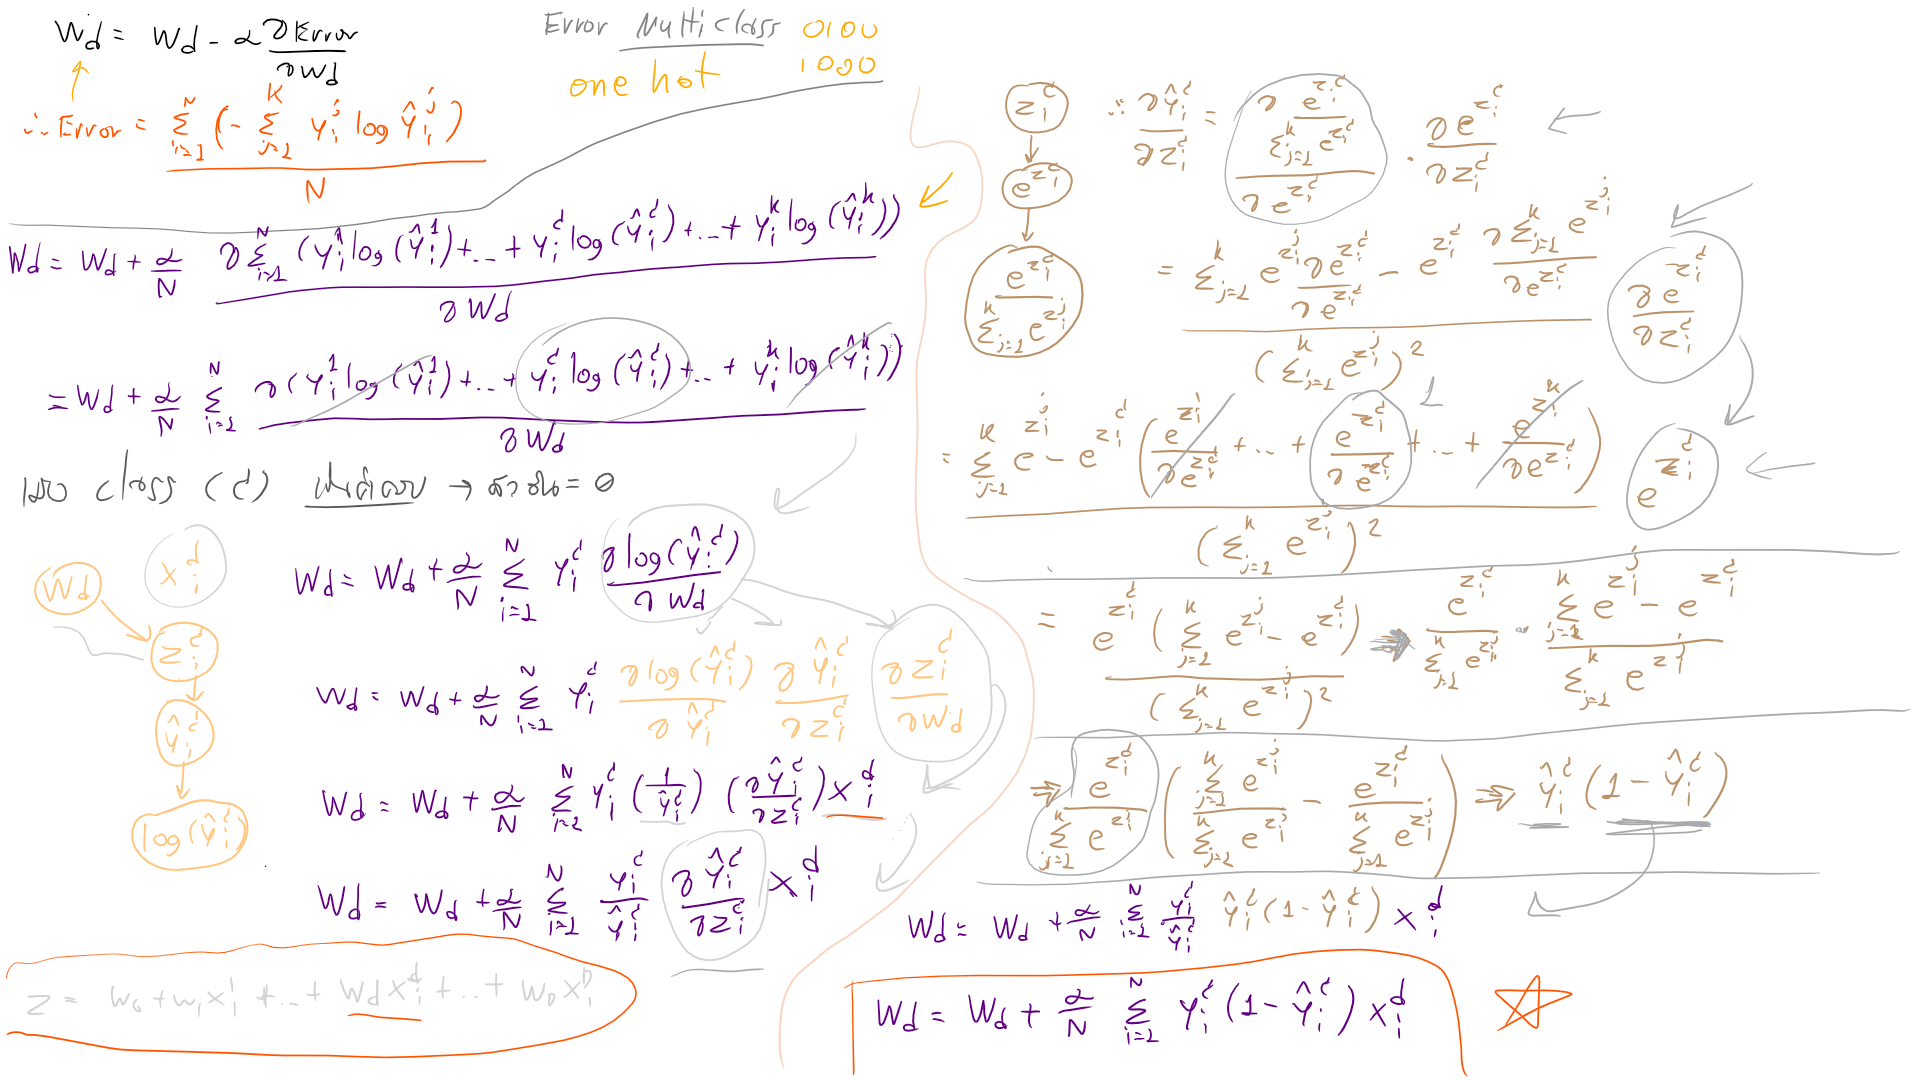 Wd = Wd - α ∂Error / ∂Wd
Error Multiclass 0100
one hot 1000
∴ Error = Σ_{i=1}^{N} (- Σ_{j=1}^{K} y_i^j log ŷ_i^j) / N
Wd = Wd + α/N ∂Σ_{i=1}^{N} (y_i^1 log(ŷ_i^1) + ... + y_i^c log(ŷ_i^c) + ... + y_i^k log(ŷ_i^k)) / ∂Wd
= Wd + α/N Σ_{i=1}^{N} ∂(y_i^1 log(ŷ_i^1) + ... + y_i^c log(ŷ_i^c) + ... + y_i^k log(ŷ_i^k)) / ∂Wd
class (c) → = 0
Wd = Wd + α/N Σ_{i=1}^{N} y_i^c ∂log(ŷ_i^c) / ∂Wd
Wd = Wd + α/N Σ_{i=1}^{N} y_i^c ∂log(ŷ_i^c)/∂ŷ_i^c ∂ŷ_i^c/∂z_i^c ∂z_i^c/∂Wd
Wd = Wd + α/N Σ_{i=1}^{N} y_i^c (1/ŷ_i^c) (∂ŷ_i^c/∂z_i^c) x_i^d
Wd = Wd + α/N Σ_{i=1}^{N} y_i^c/ŷ_i^c ∂ŷ_i^c/∂z_i^c x_i^d
x_i^d
Wd
z_i^c
ŷ_i^c
log(ŷ_i^c)
z = w0 + w1 x_i^1 + ... + wd x_i^d + ... + wD x_i^D
z_i^c
e^{z_i^c}
e^{z_i^c} / Σ_{j=1}^{k} e^{z_i^j}
∴ ∂ŷ_i^c/∂z_i^c = ∂ (e^{z_i^c} / Σ_{j=1}^{k} e^{z_i^c}) / ∂e^{z_i^c} · ∂e^{z_i^c}/∂z_i^c
= (Σ_{j=1}^{k} e^{z_i^j} ∂e^{z_i^c}/∂e^{z_i^c} - e^{z_i^c} ∂Σ_{j=1}^{k} e^{z_i^j}/∂e^{z_i^c}) / (Σ_{j=1}^{k} e^{z_i^j})^2
∂e^{z_i^c}/∂z_i^c
1
= (Σ_{j=1}^{k} e^{z_i^j} - e^{z_i^c} (e^{z_i^1}/∂e^{z_i^c} + ... + e^{z_i^c}/∂e^{z_i^c} + ... + e^{z_i^k}/∂e^{z_i^c})) / (Σ_{j=1}^{k} e^{z_i^j})^2
e^{z_i^c}
= e^{z_i^c} (Σ_{j=1}^{k} e^{z_i^j} - e^{z_i^c}) / (Σ_{j=1}^{k} e^{z_i^j})^2 ⇒ e^{z_i^c}/Σ_{j=1}^{k} e^{z_i^j} · (Σ_{j=1}^{k} e^{z_i^j} - e^{z_i^c}) / Σ_{j=1}^{k} e^{z_i^j}
⇒ e^{z_i^c}/Σ_{j=1}^{k} e^{z_i^j} (Σ_{j=1}^{k} e^{z_i^j}/Σ_{j=1}^{k} e^{z_i^j} - e^{z_i^c}/Σ_{j=1}^{k} e^{z_i^j}) ⇒ ŷ_i^c (1 - ŷ_i^c)
Wd = Wd + α/N Σ_{i=1}^{N} y_i^c/ŷ_i^c ŷ_i^c (1 - ŷ_i^c) x_i^d
Wd = Wd + α/N Σ_{i=1}^{N} y_i^c (1 - ŷ_i^c) x_i^d